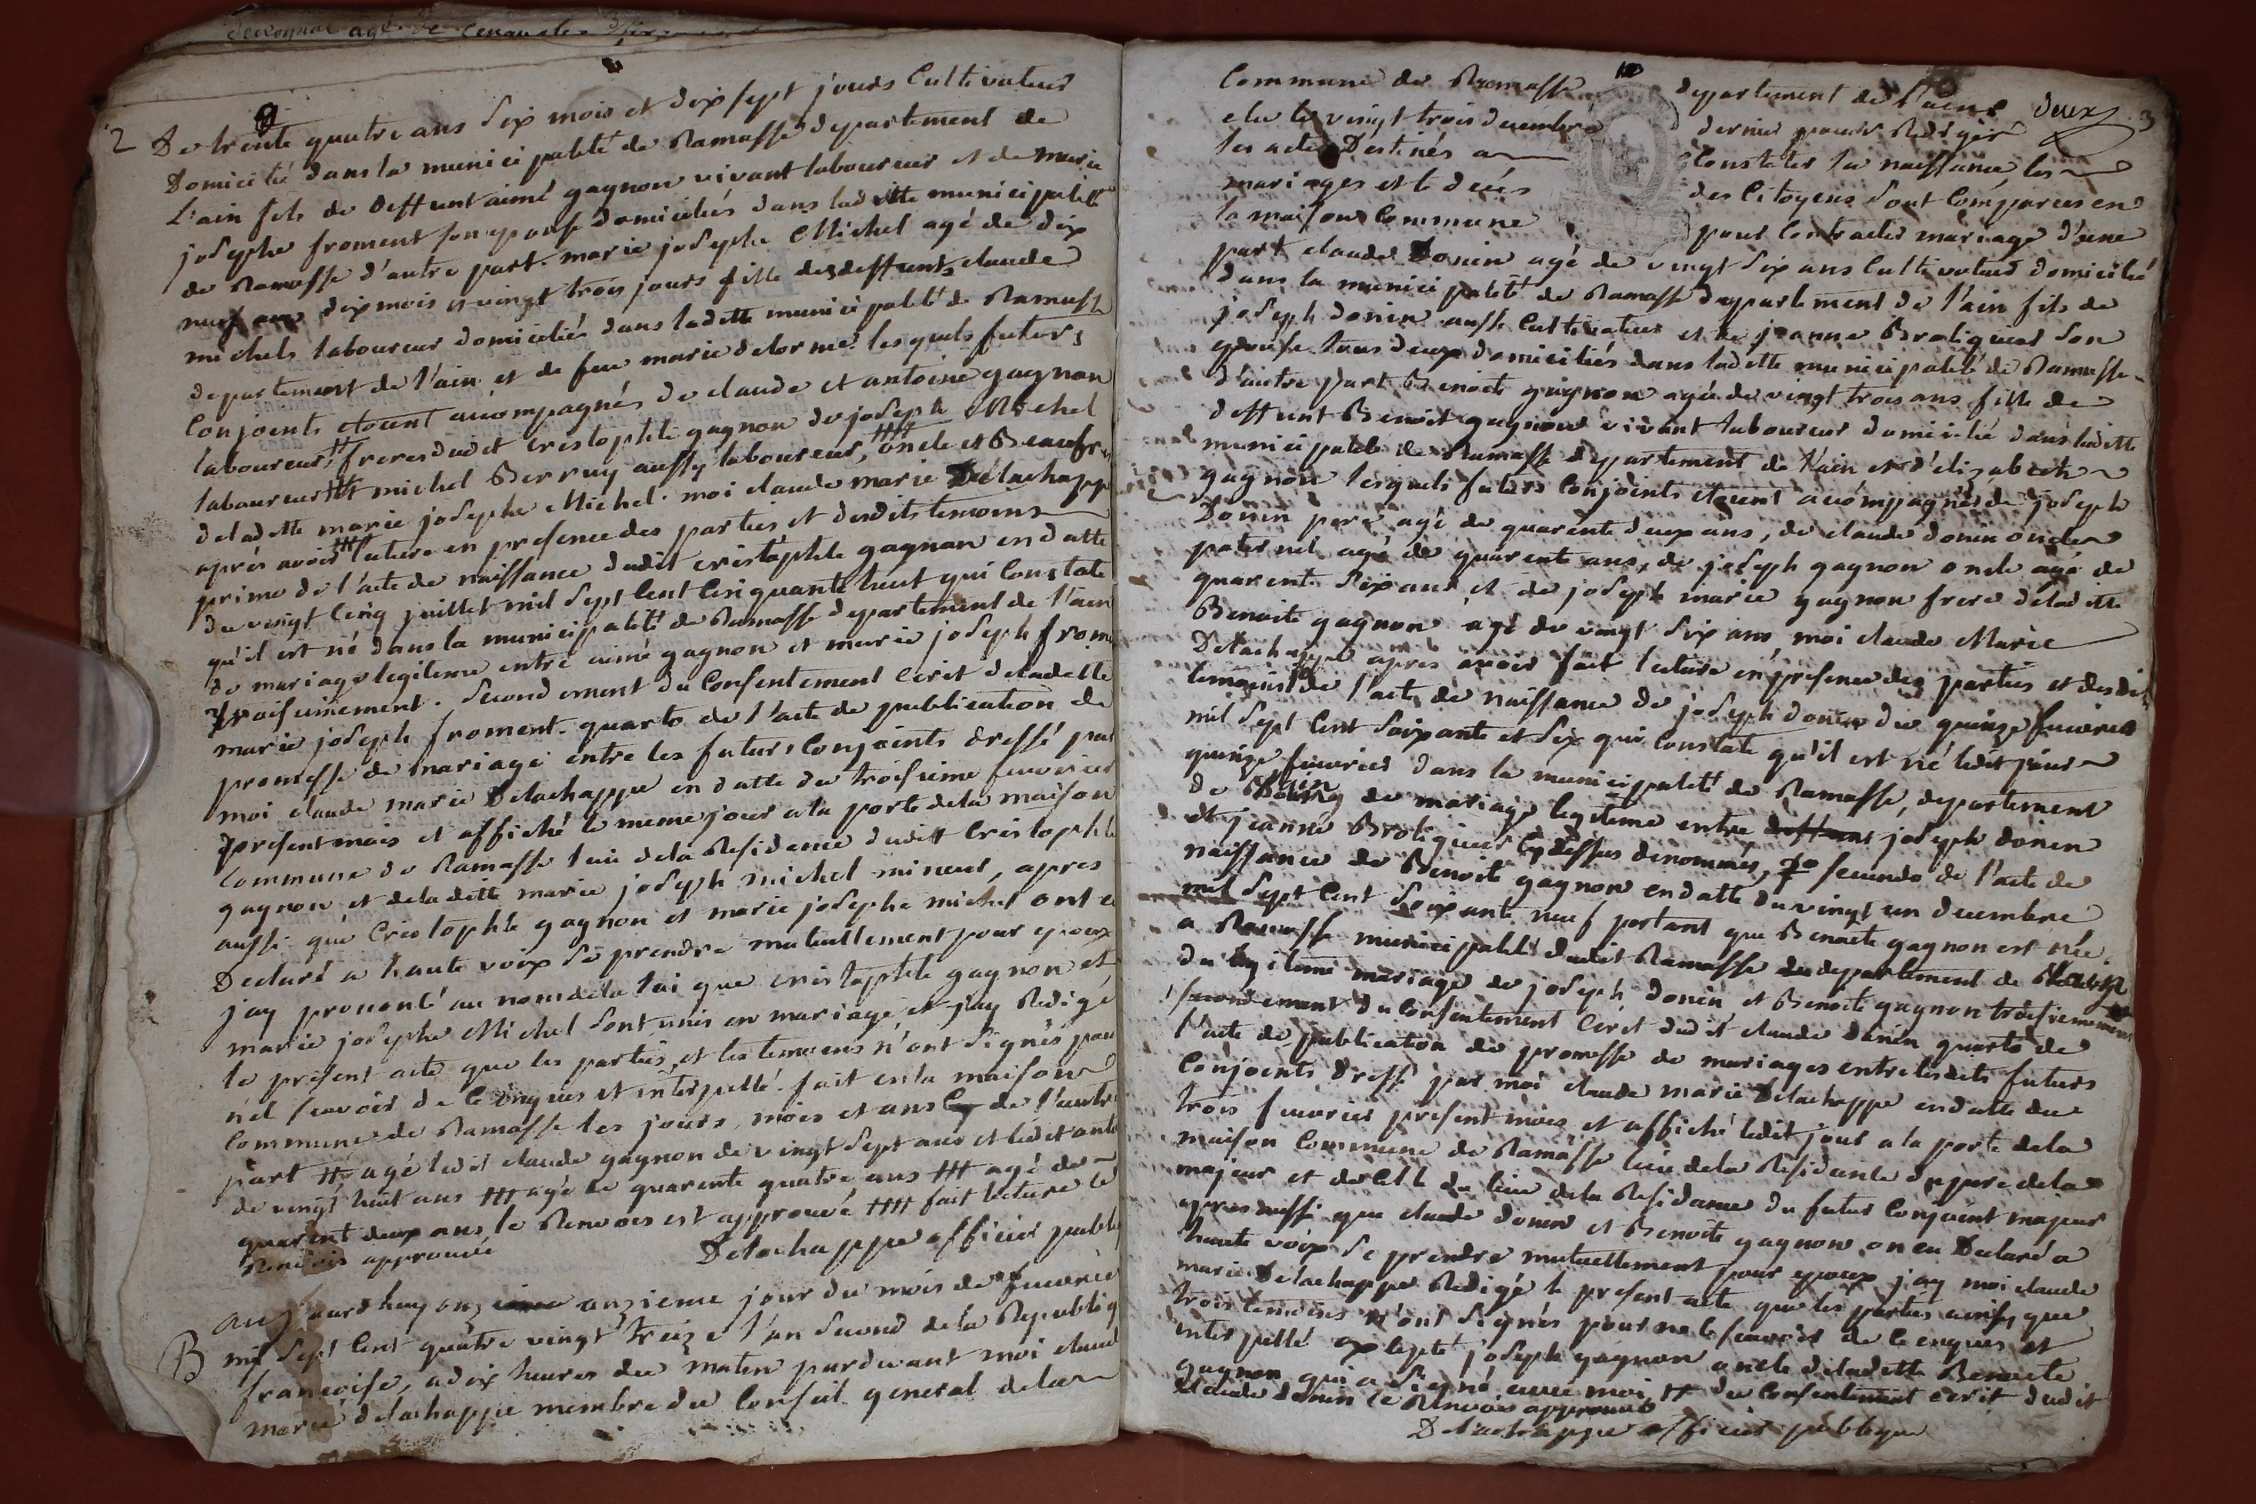 agé de Cinquante
2
9
De trente quatre ans Six mois et dix sept jours Cultivateur
Domicilié dans la municipalité de Ramasse departement de
L'ain fils de deffunt aimé gagnon vivant laboureur et de marie
josephe froment son epouse domiciliés dans laditte municipalité
de Ramasse d'autre part. marie josephe Michel agé de dix
neuf ans dix mois et vingt trois jours fille des deffunts claude
michel laboureur domiciliés dans laditte municipalité de Ramasse
departement de l'ain et de feue marie delorme. lesquels futurs
Conjoints etoient acompagnés de claude et antoine gagnon
laboureur, # freres dudit cristophle gagnon de joseph Michel
laboureur ## et michel Berruy aussy laboureur, ### oncle et Beaufrere
deladitte marie josephe Michel. moi claude marie Delachappe
aprés avoir #### lature en presence des parties et desdits temoins
primo de l'acte de naissance dudit cristophle gagnon en datte
du vingt Cinq juillet mil Sept Cent Cinquante huit qui Constate
qu'il est né dans la municipalité de Ramasse departement de l'ain
de mariage legiteme entre aimé gagnon et marie joseph from
Troisiemement. Secondement du Consentement Cerit deladitte
marie joseph froment. quarto de l'acte de publication de
promesse de mariage entre les futurs Conjoints dressé par
moi claude marie Delachappe en datte du troisieme fuevrier
present mois et affiché le meme jour a la porte dela maison
Commune de Ramasse lieu dela Residence dudit Cristophle
gagnon et deladitte marie joseph michel mineur, apres
aussi que Cristophle gagnon et marie josephe michel ont
Declaré a haute voix se prendre mutuellement pour epoux
j'ay prononcé au nom dela loi que cristophle gagnon et
marie josephe Michel sont unis en mariage, et j'ay Redigé
le present acte que les parties, et les temoins n'ont Signés pour
n'el sçavoir de Ce enquis et interpellé. fait en la maison
Commune de Ramasse les jours, mois et ans Cy de l'autre
part # agé ledit claude gagnon de vingt sept ans et ledit antoi
de vingt huit ans ## agé de quarente quatre ans ### agé de
quarent deux ans le Renvois est approuvé #### fait lecture le
Renvois approuvée
Delachappe officier public
B
aujourd'huy onzieme jour du mois de fuevrier
mil Sept Cent quatre vingt treize l'an Second dela Republiq
francoise, a dix heures du matin pardevant moi claude
marie delachappe membre du Conseil general dela
10
deux
3
Commune de Ramasse departement de l'ain
elu le vingt trois decembre dernier pouvoir Redigér
les actes Destinés a Constater la naissance, les
mariages et le decés des Citoyens Sont Compareus en
la maison Commune pour Contracter mariage d'une
part claude Donin agé de vingt Six ans Cultivateur domicilié
dans la municipalité de Ramasse departement de l'ain fils de
joseph donin aussi Cultivateur et de jeanne Brotiquer Son
epouse tous deux domiciliés dans laditte municipalité de Ramasse
d'autre part Benoite gagnon agé de vingt trois ans fille de
deffunt Benoit gagnon vivant laboureur domicilié dans laditte
municipalité de Ramasse departement de l'ain et d'elizabeth
gagnon lesquels futurs Conjoints etoient acompagnés de joseph
Donin pere agé de quarente deux ans, de claude donin oncle
paternel agé de quarente ans, de joseph gagnon oncle agé de
quarente Six ans et de joseph marie gagnon frere deladitte
Benoite gagnon agé de vingt Six ans, moi claude Marie
Delachappe apres avoir fait lecture en presence des parties et desdits
temoins de l'acte de naissance de joseph donin du quinze fuevrier
mil Sept Cent Soixante et Six qui Constate qu'il est né ledit jour
quinze fuevrier dans la municipalité de Ramasse, departement
de l'ain de mariage legiteme entre deffunt joseph donin
et jeanne Brotiquer Cy dessus denommés, secundo de l'acte de
naissance de Benoite gagnon en datte du vingt un decembre
mil Sept Cent Soixante neuf portant que Benoite gagnon est née
a Ramasse municipalité dudit Ramasse departement de
du legiteme mariage de joseph donin et Benoite gagnon troisiemement
secondement du Consentement Cerit dudit claude donin quarto de
l'acte de publication de promesse de mariages entre lesdits futurs
Conjoints dressé par moi claude marie Delachappe en datte du
trois fuevrier present mois, et affiché ledit jour a la porte dela
maison Commune de Ramasse lieu dela Residence du pere dela
majeur et de Celle du lieu dela Residance du futur Conjoint majeur
apres aussi que claude donin et Benoite gagnon on eu Declaré a
haute voix Se prendre mutuellement pour epoux j'ay moi claude
marie Delachappe Redigé le present acte que les parties ainsy que
trois temoins n'ont Signés pour ne le sçavoir de Ce enquis et
interpellé exsepté joseph gagnon oncle deladitte Benoite
gagnon qui a Signé avec moi # du Consentement Cerit dudit
claude donin le Renvois approuvé
Delachappe officier publique